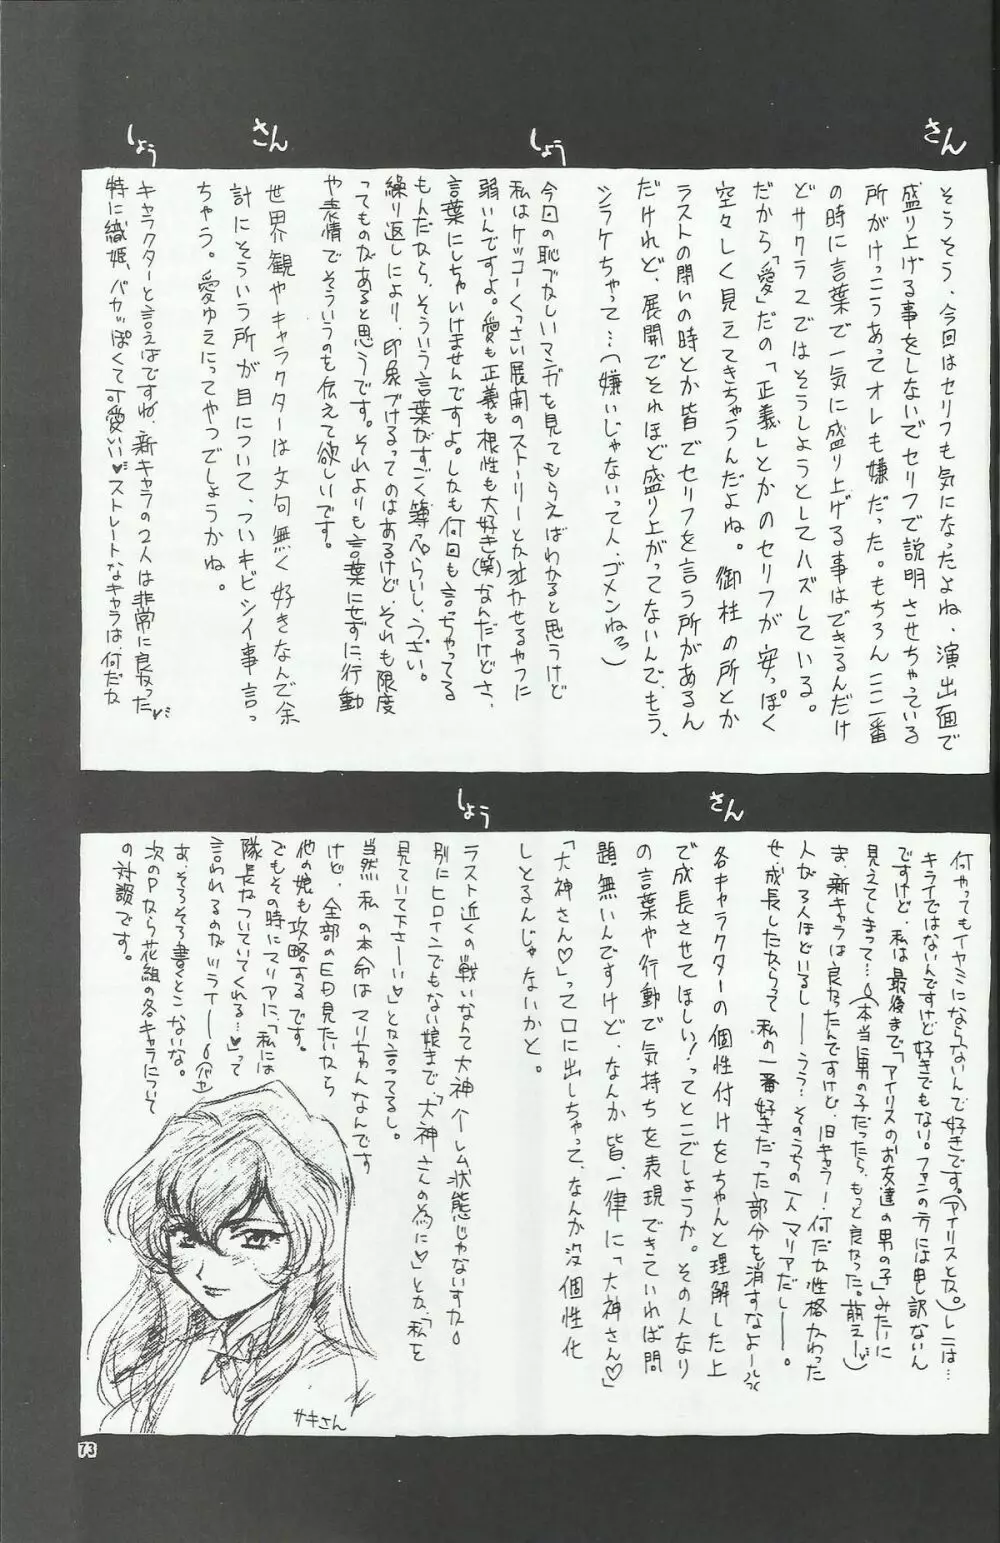 さん
そうそう、今回はセリフも気になったよね、演出面で
盛り上げる事をしないでセリフで説明させちゃっている
所がけっこうあってオレも嫌だった。もちろん ここ一番
の時に言葉で一気に盛り上げる事はできるんだけ
どサクラ2ではそうしようとしてハズしている。
だから「愛」だの「正義」とかのセリフが安っぽく
空々しく見えてきちゃうんだよね。御柱の所とか
ラストの闘いの時とか皆でセリフを言う所があるん
だけれど、展開でそれほど盛り上がってないんで、もう、
シラケちゃって…(嫌いじゃないって人、ゴメンねろ)
しょう
今回の恥ずかしいマンガを見てもらえばわかると思うけど
私はケッコーくっさい展開のストーリーとか泣かせるやつに
弱いんですよ。愛も正義も根性も大好き(笑)なんだけどさ、
言葉にしちゃいけませんですよ。しかも何回も言っちゃってる
もんだから、そういう言葉がすごく薄っぺらいし、うざい。
繰り返しにより、印象づけるってのはあるけど、それも限度
ってものがあると思うです。それよりも言葉にせずに、行動
や表情でそういうのも伝えて欲しいです。
さん
世界観やキャラクターは文句無く好きなんで余
計にそういう所が目について、ついキビシイ事言っ
ちゃう。愛ゆえにってやつでしょうかね。
しょう
キャラクターと言えばですね、新キャラの2人は非常に良かった♥
特に織姫、バカっぽくて可愛いい♥ストレートなキャラは、何だか
何やってもイヤミにならないんで好きです。(アイリスとか。)レニは…
キライではないんですけど好きでもない。ファンの方には申し訳ないん
ですけど、私は最後まで「アイリスのお友達の男の子」みたいに
見えてしまって…(本当に男の子だったら、もっと良かった。萌えー♥)
ま、新キャラは良かったんですけど、旧キャラー、何だか性格かわった
人が3人ほどいるしーーうう?そのうちの一人マリアだしーー。
せ、成長したからって私の一番好きだった部分を消すなよーー
さん
各キャラクターの個性付けをちゃんと理解した上
で成長させてほしい!ってとこでしょうか。その人なり
の言葉や行動で気持ちを表現できていれば問
題無いんですけど、なんか皆、一律に「大神さん♡」
「大神さん♡」って口に出しちゃって、なんか没個性化
しとるんじゃないかと。
しょう
ラスト近くの戦いなんて大神ハーレム状態じゃないすか。
別にヒロインでもない娘まで、「大神さんの為に♡」とか、「私を
見ていて下さーい♥」とか言ってるし。
当然 私の本命はマリちゃんなんです
けど、全部のED見たいなら
他の娘も攻略するです。
でもその時にマリアに、「私には
隊長がついていてくれる…♥」って
言われるのがツライーー
あ、そろそろ書くとこないな。
次のPなら花組の各キャラについて
の対談です。
サキさん
73